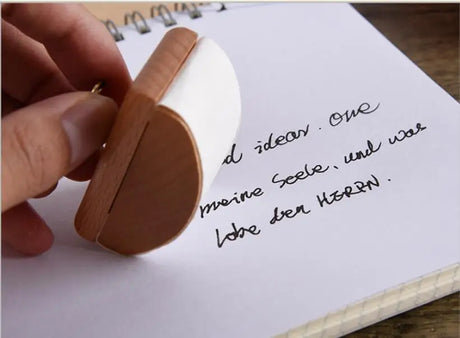 d ideas. One
meine Seele, und was
Lobe den HEREN.